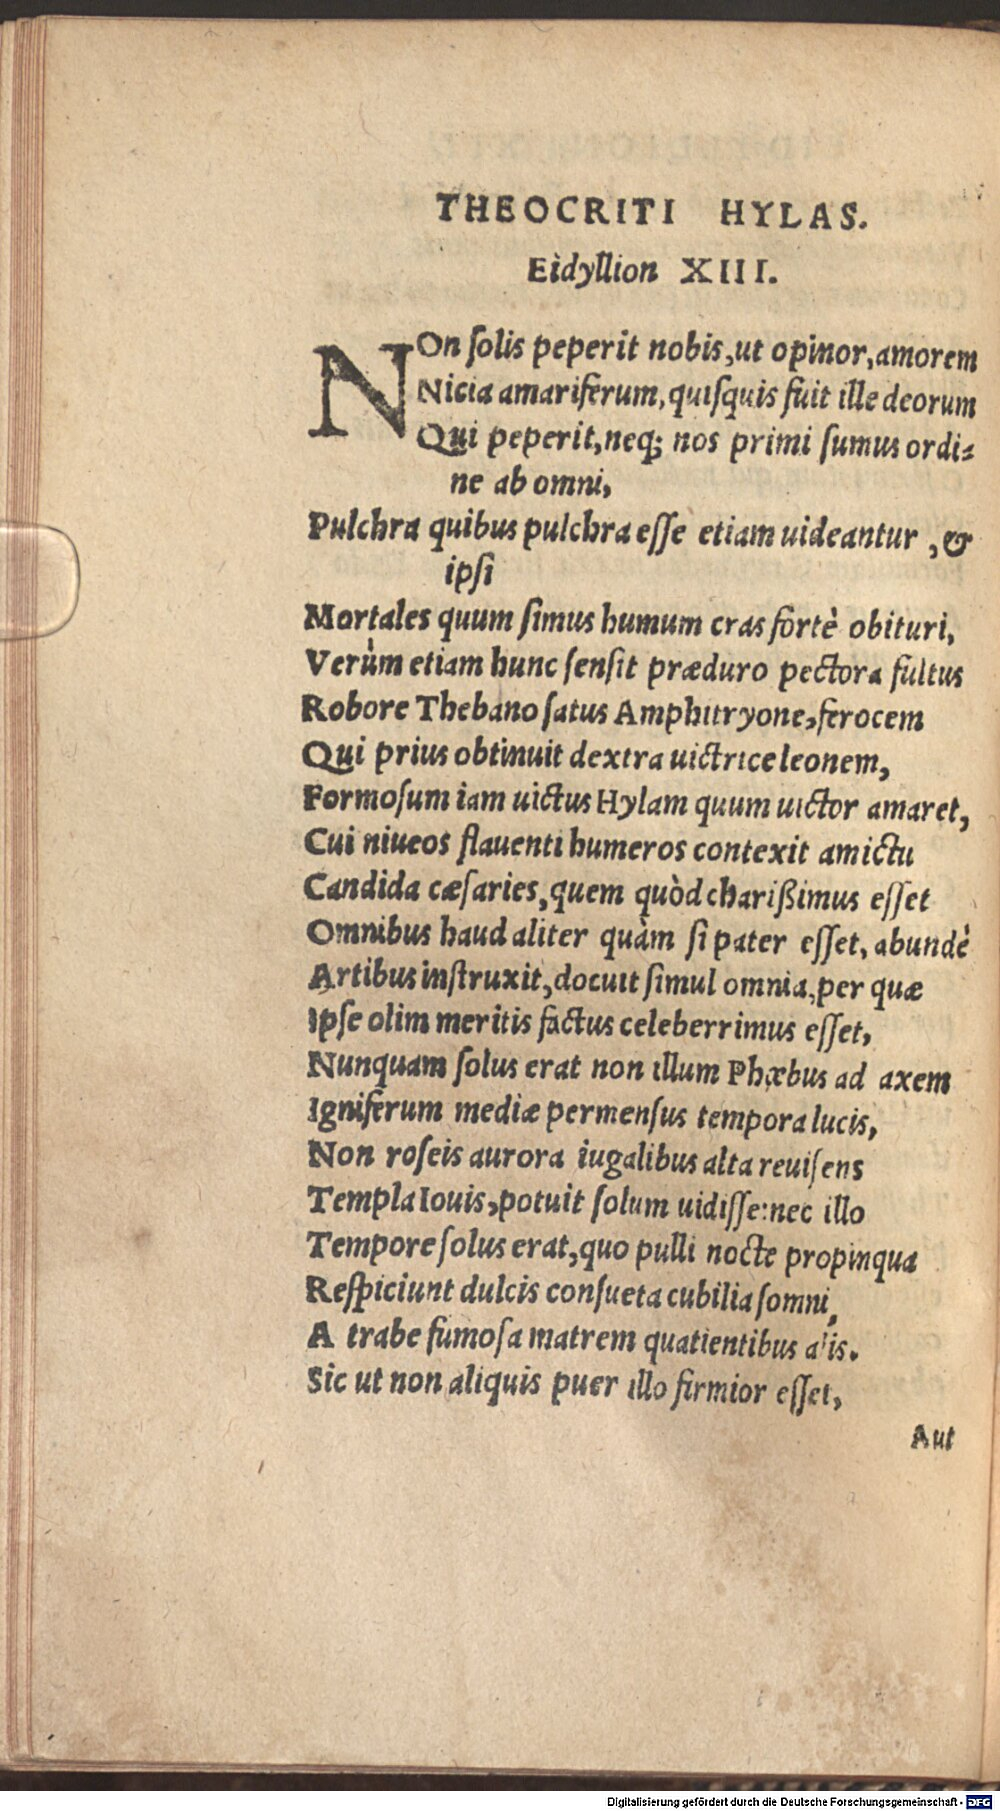 THEOCRITI HYLAS.
Eidyllion XIII.
NOn ſolis peperit nobis, ut opinor, amorem
Nicia amariferum, quiſquis fuit ille deorum
Qui peperit, neq; nos primi ſumus ordi-
ne ab omni,
Pulchra quibus pulchra eſſe etiam uideantur, &
ipſi
Mortales quum ſimus humum cras fortè obituri,
Verùm etiam hunc ſenſit præduro pectora fultus
Robore Thebano ſatus Amphitryone, ferocem
Qui prius obtinuit dextra uictrice leonem,
Formoſum iam uictus Hylam quum uictor amaret,
Cui niueos flauenti humeros contexit amictu
Candida cæſaries, quem quòd charißimus eſſet
Omnibus haud aliter quàm ſi pater eſſet, abundè
Artibus inſtruxit, docuit ſimul omnia, per quæ
Ipſe olim meritis factus celeberrimus eſſet,
Nunquam ſolus erat non illum Phœbus ad axem
Igniferum mediæ permenſus tempora lucis,
Non roſeis aurora iugalibus alta reuiſens
Templa Iouis, potuit ſolum uidiſſe: nec illo
Tempore ſolus erat, quo pulli nocte propinqua
Reſpiciunt dulcis conſueta cubilia ſomni,
A trabe fumoſa matrem quatientibus alis.
Sic ut non aliquis puer illo firmior eſſet,
Aut
Digitalisierung gefördert durch die Deutsche Forschungsgemeinschaft - DFG